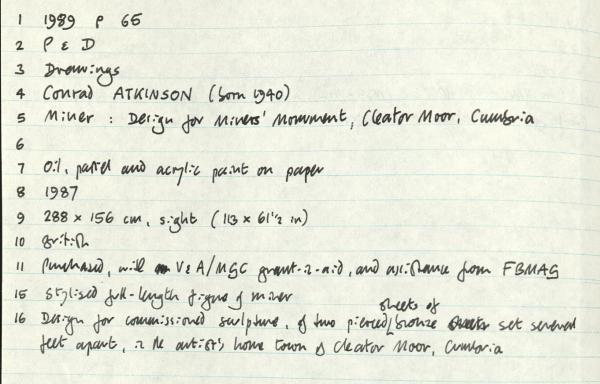 1 1989 P 65
2 P & D
3 Drawings
4 Conrad ATKINSON (born 1940)
5 Miner : Design for Miners' Monument, Cleator Moor, Cumbria
6
7 Oil, pastel and acrylic paint on paper
8 1987
9 288 x 156 cm, sight (113 x 61 1/2 in)
10 British
11 Purchased, with V & A/MGC grant-in-aid, and assistance from FBMAG
15 Stylised full-length figure of miner
16 Design for commissioned sculpture, of two pierced/bronze sheets of set several
feet apart, in the artist's home town of Cleator Moor, Cumbria